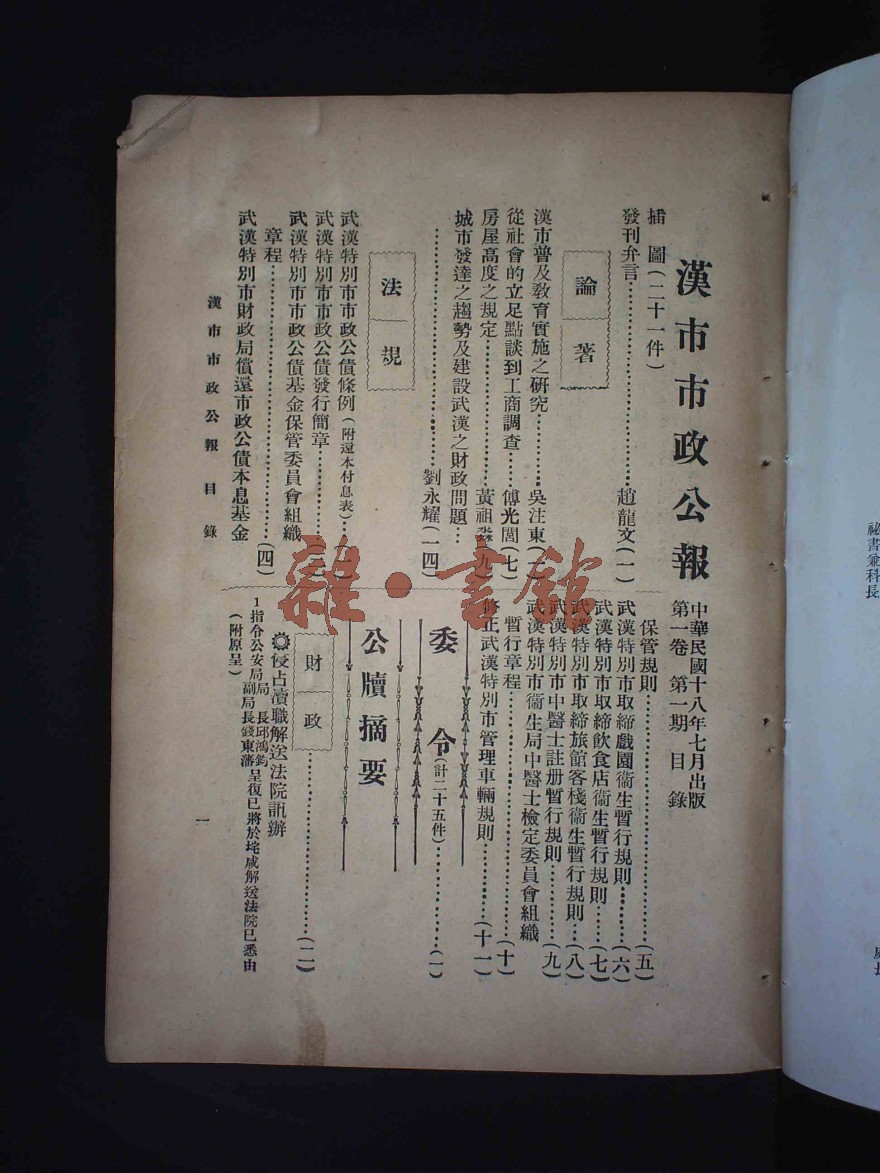 漢市市政公報
中華民國十八年七月出版
第一卷 第一期 目錄
插圖(二十一件)
發刊弁言……趙龍文(一)
論著
漢市普及教育實施之研究……吳注東(一)
從社會的立足點談到工商調查……傅光閭(七)
房屋高度之規定……黃祖淼(九)
城市發達之趨勢及建設武漢之財政問題…
……劉永耀(一四)
法規
武漢特別市市政公債條例(附還本付息表)…(一)
武漢特別市市政公債發行簡章……
武漢特別市市政公債基金保管委員會組織
章程……(四)
武漢特別市財政局償還市政公債本息基金
保管規則……(五)
武漢特別市取締戲園衞生暫行規則…(六)
武漢特別市取締飲食店衞生暫行規則……(七)
武漢特別市取締旅館客棧衞生暫行規則…(八)
武漢特別市中醫士註册暫行規則……(九)
武漢特別市衞生局中醫士檢定委員會組織
暫行章程……(十)
修正武漢特別市管理車輛規則……(十一)
委令(計二十五件)……(一)
公牘摘要
財政……(二)
侵占瀆職解送法院訊辦
1指令公安局局長邱鴻鈞副局長錢東藩呈復已將於垞咸解送法院已悉由
(附原呈)
漢市市政公報 目錄
一
雜·書館
祕書兼科長